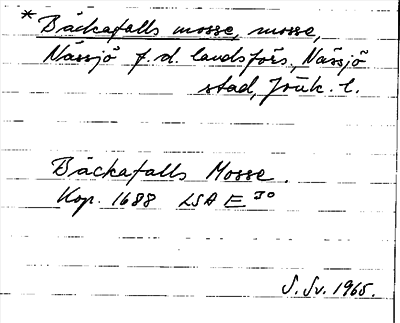 * Bäckafalls mosse, mosse,
Nässjö f.d. landsförs., Nässjö
stad, Jönk. l.
Bäckafalls Mosse.
Kop. 1688 LSA E 30
S. Sv. 1965.